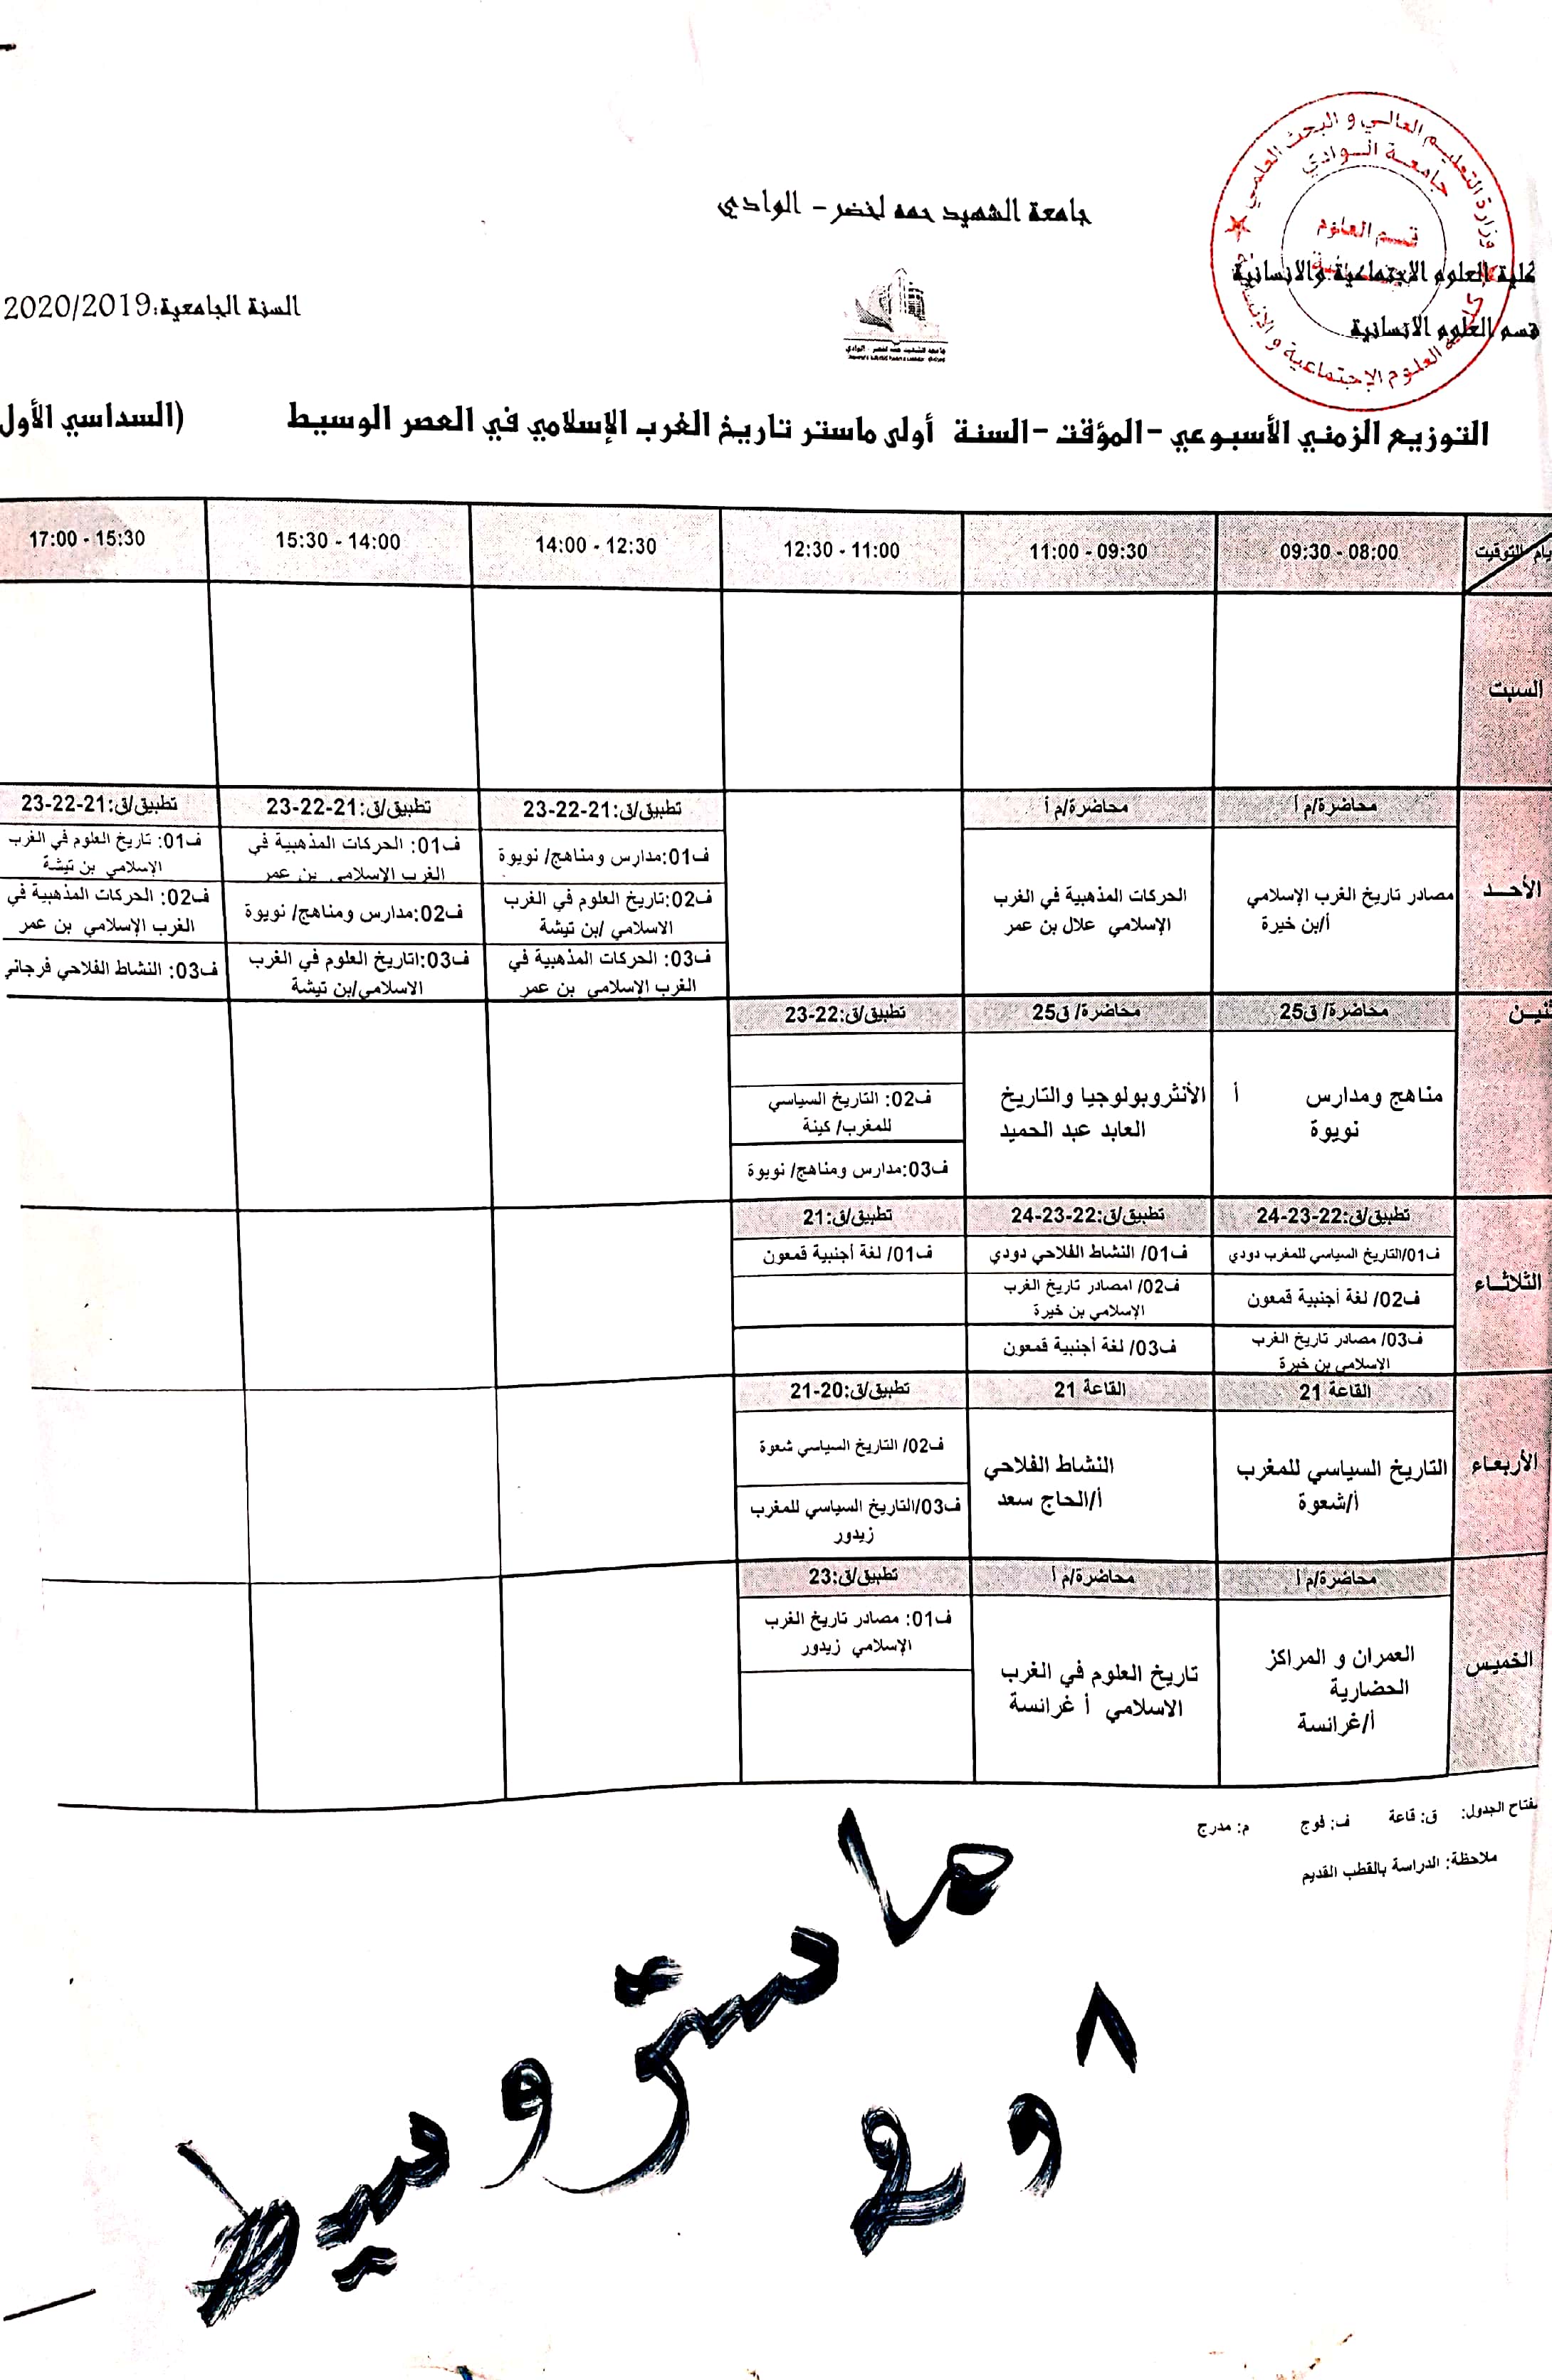 وزارة التعليم العالي و البحث العلمي
جامعة الوادي
قسم العلوم
كلية العلوم الإجتماعية و الإنسانية
جامعة الشهيد حمه لخضر - الوادي
كلية العلوم الاجتماعية والانسانية
السنة الجامعية:2020/2019
قسم العلوم الانسانية
التوزيع الزمني الأسبوعي -المؤقت -السنة أولى ماستر تاريخ الغرب الإسلامي في العصر الوسيط (السداسي الأول
التوقيت 09:30 - 08:00 11:00 - 09:30 12:30 - 11:00 14:00 - 12:30 15:30 - 14:00 17:00 - 15:30
السبت
الأحـد
محاضرة/م أ
مصادر تاريخ الغرب الإسلامي
أ/بن خيرة
محاضرة/م أ
الحركات المذهبية في الغرب
الإسلامي علال بن عمر
تطبيق/ق:21-22-23
ف01:مدارس ومناهج/ نويوة
ف02:تاريخ العلوم في الغرب
الاسلامي /بن تيشة
ف03: الحركات المذهبية في
الغرب الإسلامي بن عمر
تطبيق/ق:21-22-23
ف01: الحركات المذهبية في
الغرب الإسلامي بن عمر
ف02:مدارس ومناهج/ نويوة
ف03:اتاريخ العلوم في الغرب
الاسلامي/بن تيشة
تطبيق/ق:21-22-23
ف01: تاريخ العلوم في الغرب
الإسلامي بن تيشة
ف02: الحركات المذهبية في
الغرب الإسلامي بن عمر
ف03: النشاط الفلاحي فرجاني
ثنيـن
محاضرة/ ق25
مناهج ومدارس أ
نويوة
محاضرة/ ق25
الأنثروبولوجيا والتاريخ
العابد عبد الحميد
تطبيق/ق:22-23
ف02: التاريخ السياسي
للمغرب/ كينة
ف03:مدارس ومناهج/ نويوة
الثلاثـاء
تطبيق/ق:22-23-24
ف01/التاريخ السياسي للمغرب دودي
ف02/ لغة أجنبية قمعون
ف03/ مصادر تاريخ الغرب
الإسلامي بن خيرة
تطبيق/ق:22-23-24
ف01/ النشاط الفلاحي دودي
ف02/ امصادر تاريخ الغرب
الإسلامي بن خيرة
ف03/ لغة أجنبية قمعون
تطبيق/ق:21
ف01/ لغة أجنبية قمعون
الأربعـاء
القاعة 21
التاريخ السياسي للمغرب
أ/شعوة
القاعة 21
النشاط الفلاحي
أ/الحاج سعد
تطبيق/ق:20-21
ف02/ التاريخ السياسي شعوة
ف03/التاريخ السياسي للمغرب
زيدور
الخميس
محاضرة/م أ
العمران و المراكز
الحضارية
أ/غرانسة
محاضرة/م أ
تاريخ العلوم في الغرب
الاسلامي أ غرانسة
تطبيق/ق:23
ف01: مصادر تاريخ الغرب
الإسلامي زيدور
مفتاح الجدول: ق: قاعة ف: فوج م: مدرج
ملاحظة: الدراسة بالقطب القديم
ماستر وسيط